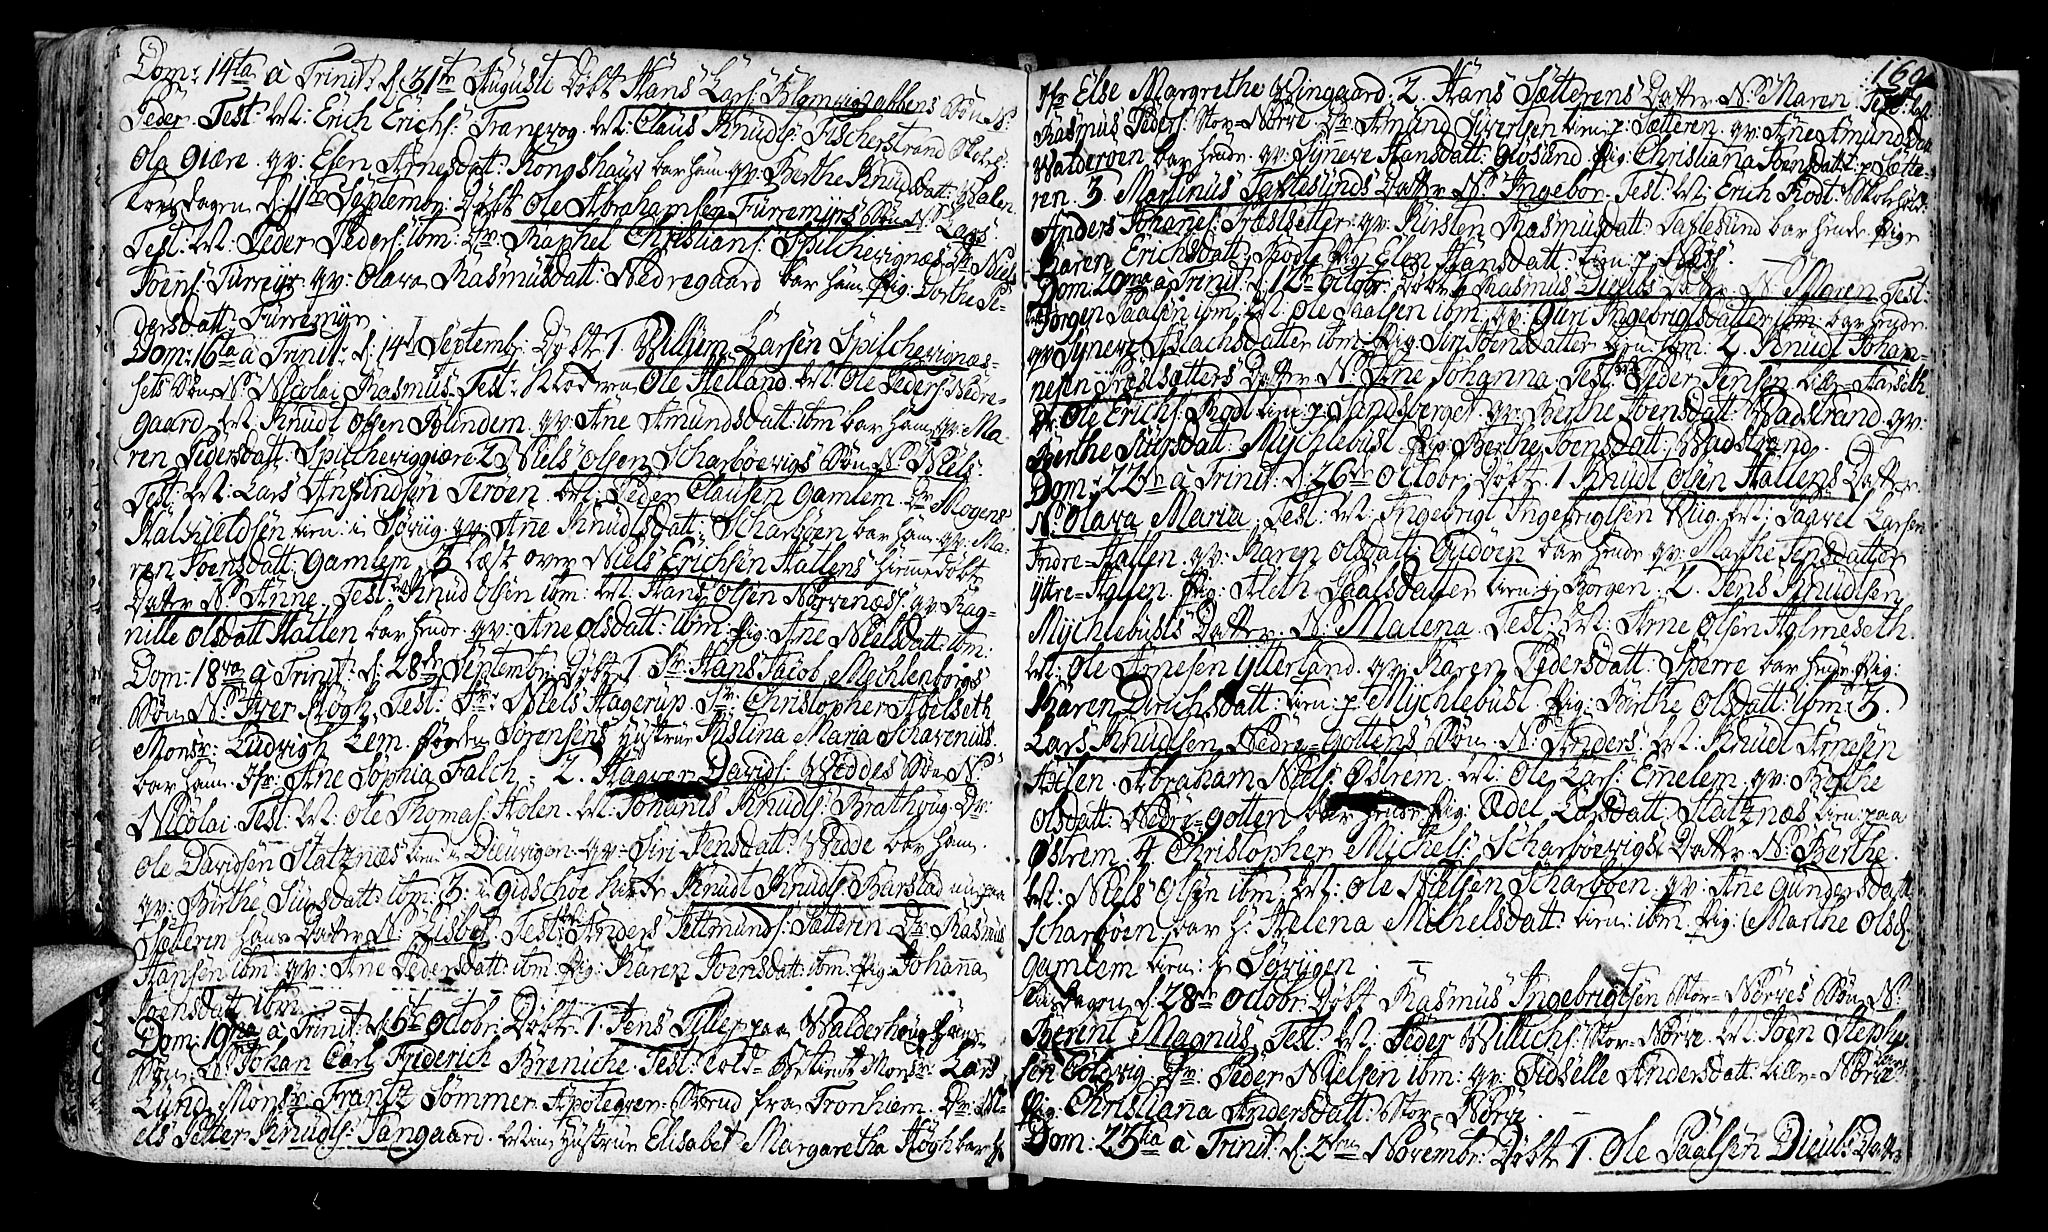 Dom: 14ta à Trinit: d: 31te Augusti Døbt Hans Lars: Blomvigs Søn N:
Peder. Test: Erich Erichs: Tranevog. Claus Knuds: Fischerstrand
Ola Giære. qv: Elen Arnesdatt: Kongshaug bar ham. qv: Berthe Knudsdatt: Walen.
Torsdagen d: 11te Septembr: Døbt Ole Abrahamsen Furremyrs Søn N: Lars
Test: Peder Peders: ibm: Dr: Raphel Christians: Spilchevignæs Dr: Niels
Joens: Furremyr. qv: Olava Rasmusdatt: Nedregaard bar ham Pig: Dorthe Pe-
dersdatt: Furremyr.
Dom: 16ta à Trinit: d: 14de Septembr: Døbt 1. Willum Larsen Spilchevignæs-
sets Søn N: Nicolai Rasmus. Test: Ole Helland. Ole Peders: Nedre-
gaard. Knud Olsen Blindem. qv: Ane Amundsdatt: ibm bar ham qv: Ma-
ren Pedersdatt: Spilcheviggiære. 2 Niels Olsen Scharbøevigs Søn N: Niels.
Test: Lars Terøen. Peder Clausen Gamlem. Dr: Mogens
Halskieldsen tien: i Søvig. qv: Ane Knudsdatt: Scharbøen bar ham. qv: Ma-
ren Joensdatt: Gamlem. 3 Læst over Niels Erichsen Hallens hiemmedøbte
Datter N: Anne. Test: Knud Olsen ibm: Hans Olsen Norvenæss. qv: Rag-
nille Olsdatt Hatlen bar hende. qv: Ane Olsdatt: ibm: Pig: Ane Nielsdatt: ibm:
Dom: 18va à Trinit: d: 28de Septembr: Døbt 1. Sr: Hans Jacob Mechlenborgs
Søn N: Iver Høgh. Test: Hr: Niels Hagerup. Sr: Christopher Aselseth
Monsr: Ludvigh Lem. fogden Sørensens hustrue Justina Maria Schavenius.
bar ham. Jfr: Ane Sophia Falch. 2. Hagver Davids: Weddes Søn N:
Nicolai. Test: Ole Thomas: Holen. Johanis Knuds: Brathoug. Dr:
Ole Davidsen Statznæs tien: i Dievigen. qv: Siri Jensdatt: Wedde bar ham.
qv: Birthe Siursdatt: ibm: 3: i Gidschøe Knudt Knuds: Barstad nu paa
Sætterin hans Datter N: Lisbet. Test: Anders Sætterin Dr: Rasmus
Hansen ibm: qv: Ane Pedersdatt: ibm: Pig: Karen Joensdatt: ibm: Pig: Johana
Joensdatt ibm.
Dom: 19na à Trinit: d: 5te Octobr: Døbt 1. Jens Jillep paa Walderhoug hans
Søn N: Johan Carl Friderich Breniche. Test: Told-Betient Monsr: Lars
Lund. Monsr: Frantz Sommer Apotegver-Svend fra Tronhiem. Dr: Ni-
els Petter Knuds: Tangaard. hustrue Elisabet Margaretha Høgh bar h:
169
Jfr Else Margrethe Wingaard. 2. Hans Sætterens Datter N: Maren Test:
Rasmus Peders: Stor-Nørve. Dr: Amund Siverlsen tien: p: Sætteren. qv: Ane Amundsdatt
Walderøen bar hende. qv: Synneve Hansdatt: Giøsund Pig: Christiana Joensdatt: p Sætte-
ren. 3 Martinus Taftesunds Datter N: Ingebor. Test: Erich Rodt. Skoleholder
Anders Johanes: Træelsetter. qv: Kirsten Rasmusdatt: Taftesund bar hende. Pige
Karen Erichsdatt: Rodt. Pig: Elen Hansdatt: tien: p:
Dom: 20ma à Trinit: d: 12te Octobr: Døbt Rasmus Dieubs Datter N: Maren Test:
Jørgen Paalsen ibm. Ole Paalsen ibm. qv: Guri Ingebrigtsdatter ibm: bar hende.
qv: Syneve datter ibm Pig: Siri Joensdatter tien: ibm: 2. Knudt Johan-
nesen Træelsætters Datter N: Ane Johanna. Test: Peder Jensen Lille-Harseth
Ole Erichs: Rodt tien: p: Sandsberget. qv: Berthe Joensdatt: Wadstrand. qv:
Berthe Siursdatt: Mychlebust Pig: Berthe Joensdatt: Wadstrand.
Dom: 22da à Trinit: d: 26de Octobr: Døbt 1 Knudt Olsen Hallens Datter
N: Olava Maria. Test: Ingebrigt Ingebrigtsen Wiig. Paavel Larsen
Indre-Hatlen. qv: Karen Olsdatt: Gudøen bar hende qv: Marthe Jensdatter
Yttre-Hatlen. Pig: Aleth Paalsdatter tien: i Borgen. 2. Jens Knudtsen
Mychlebusts Datter N: Malena. Test: Arne Olsen Holmeseth.
Ole Arnesen Ytterland. qv: Karen Pedersdatt: Sperre bar hende. Pig:
Karen Dirichsdatt: tien: p Mychlebust. Pig: Birthe Olsdatt: ibm: 3.
Lars Knudsen Nedre-Gottens Søn N: Anders. Knud Arnesen
Abraham Niels: Østrem. Ole Lars: Emelem. qv: Berthe
Olsdatt: Nedre-Gotten bar hende Pig: Ædel Larsdatt Statznæs tien: paa
Østrem. 4 Christopher Michels: Scharboevigs Datter N: Berthe.
Niels Olsen ibm: Ole Nielsen Scharbøen. qv: Ane Gundersdatt:
Scharbøen bar h: Helena Michelsdatt: tien: ibm. Pig: Marthe Olsd:
Gamlem tien: i Søvigen.
d: 28de Octobr: Døbt Rasmus Ingebrigtsen Stor-Nørves Søn N:
Berent Magnus. Test: Peder Willichs: Stor-Nørve. Joen Steph-
sen Goldvig. Dr: Peder Nielsen ibm: qv: Zidselle Andersdatt: Lille-Nørve
Pig: Christiana Andersdatt: Stor-Nørve.
Dom: 23tia à Trinit: d: 2den Novembr: Døbt 1. Ole Paalsen Dieubs Datter